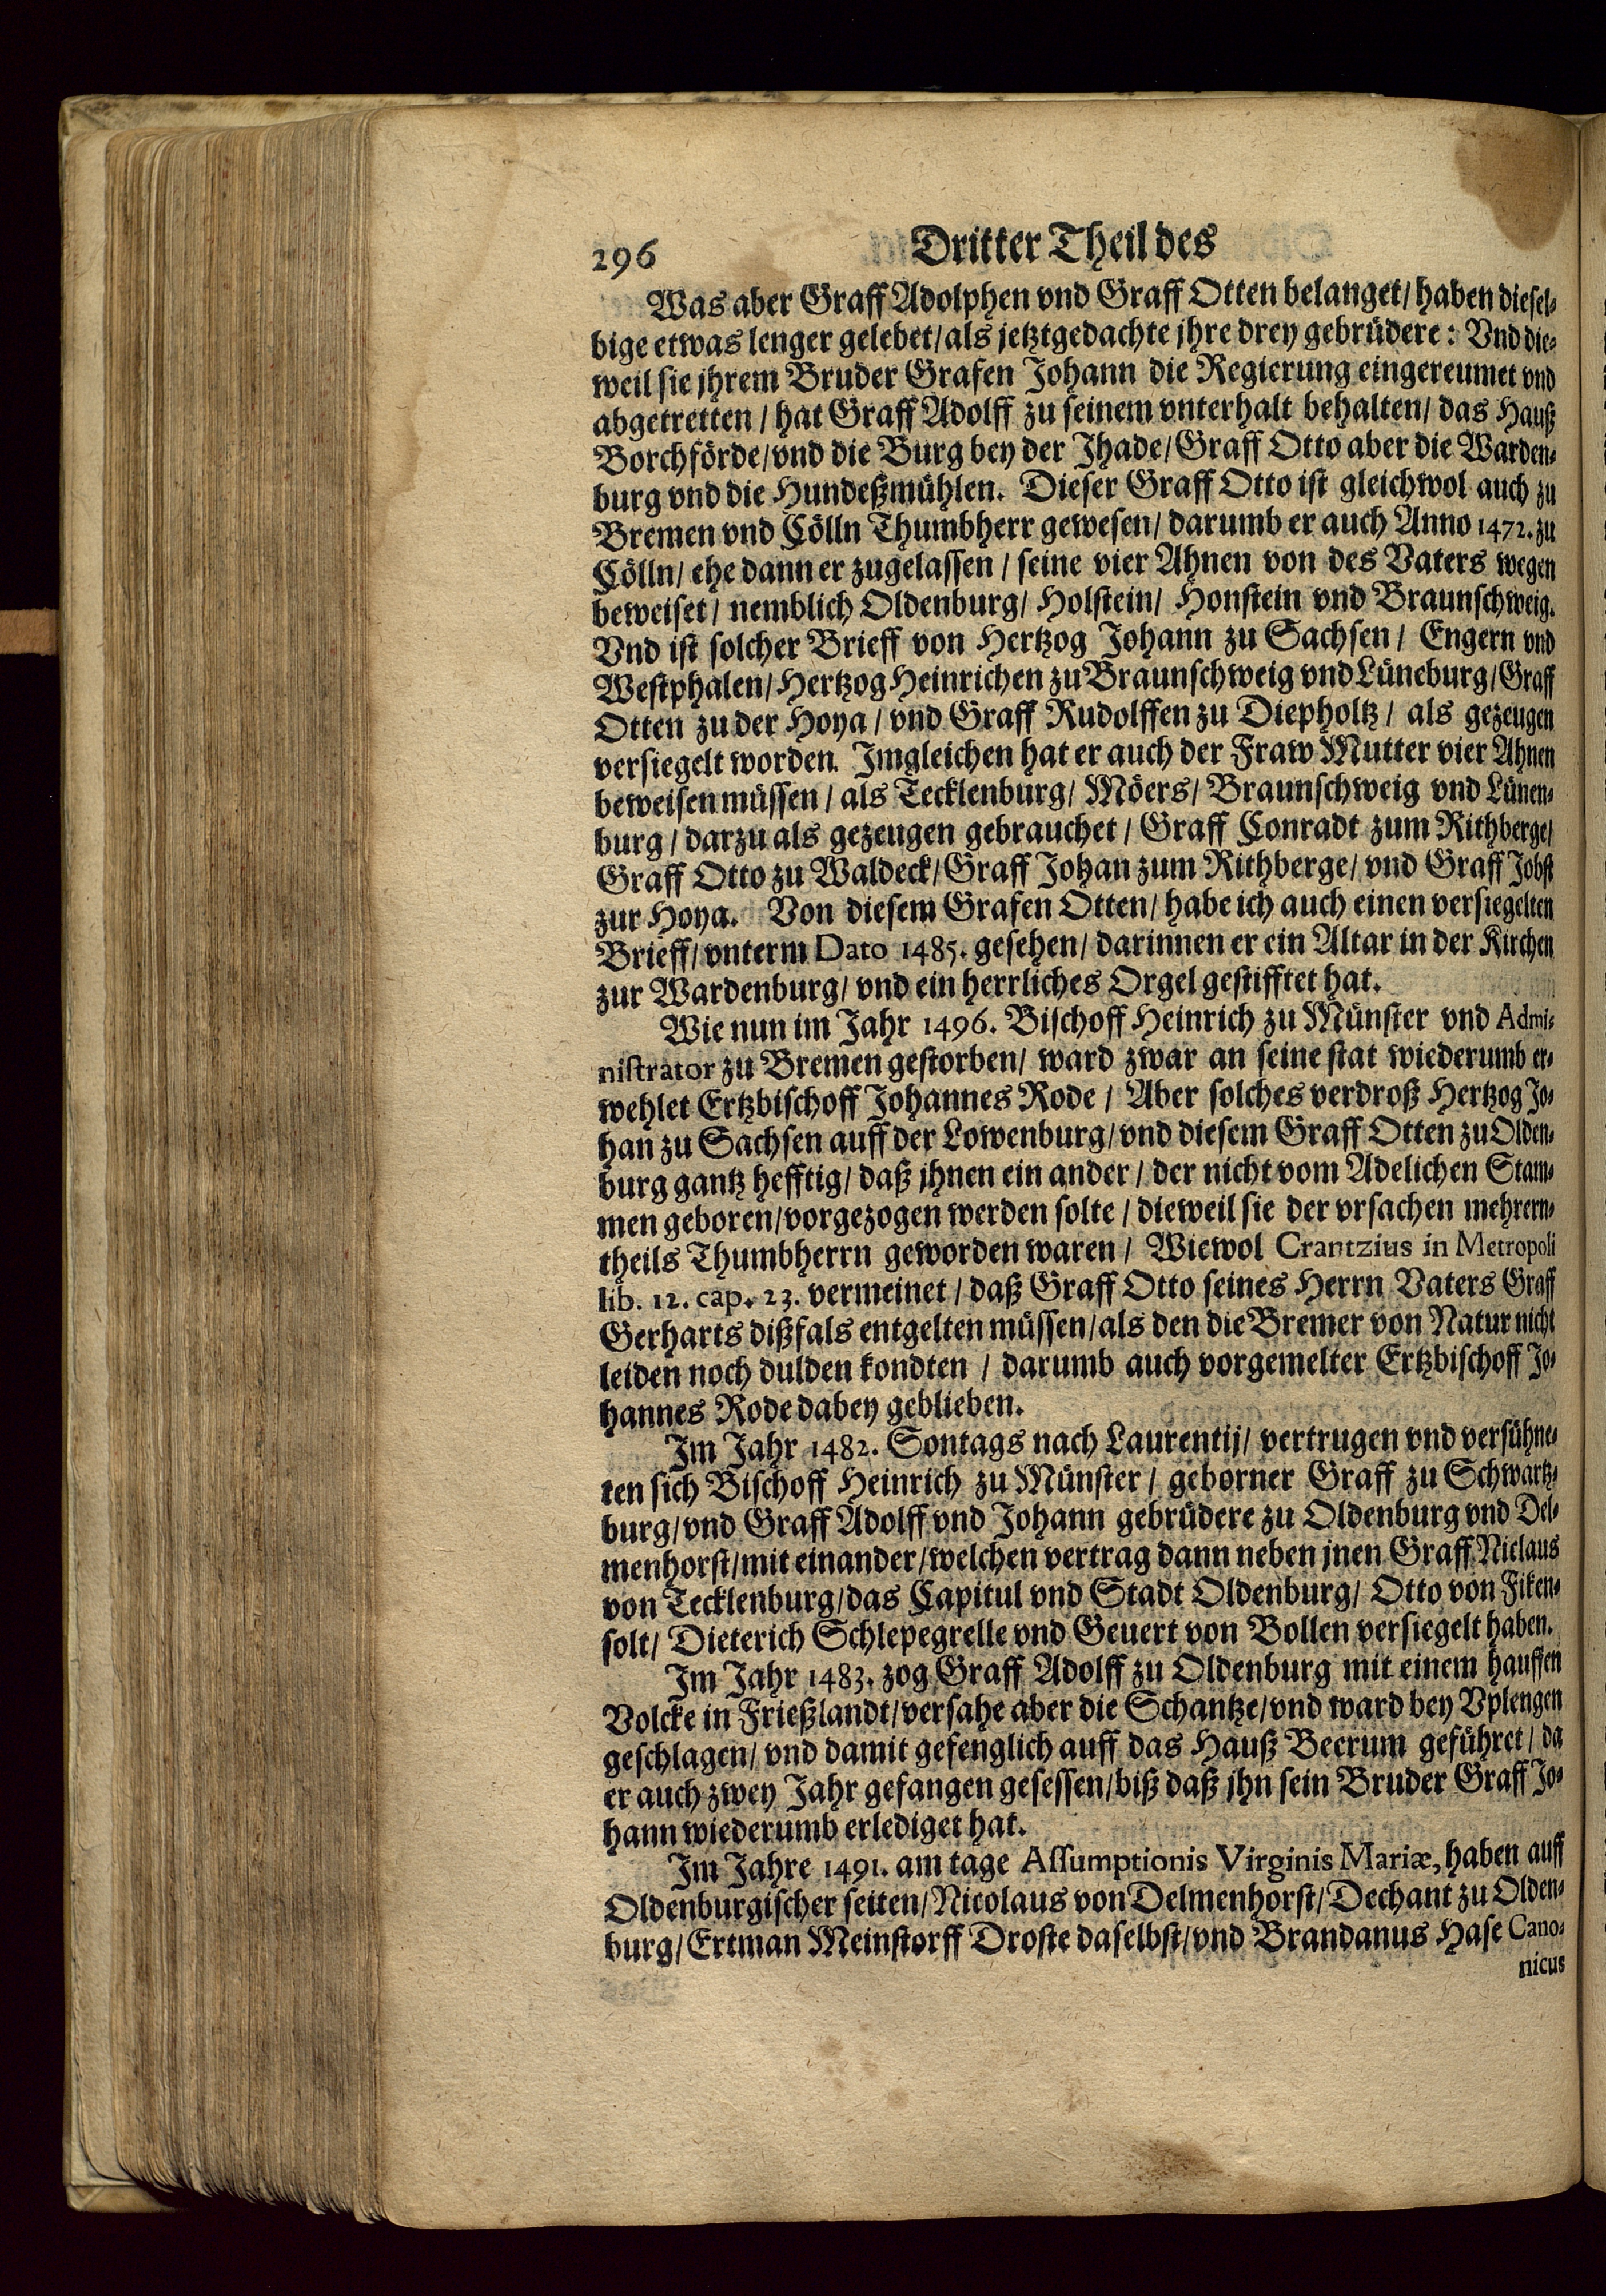 296 Dritter Theil des
Was aber Graff Adolphen vnd Graff Otten belanget/ haben diesel-
bige etwas lenger gelebet/ als jetztgedachte jhre drey gebrüdere: Vnd die-
weil sie jhrem Bruder Grafen Johann die Regierung eingereumet vnd
abgetretten / hat Graff Adolff zu seinem vnterhalt behalten/ das Hauß
Borchförde/ vnd die Burg bey der Jhade/ Graff Otto aber die Warden-
burg vnd die Hundeßmühlen. Dieser Graff Otto ist gleichwol auch zu
Bremen vnd Cölln Thumbherr gewesen/ darumb er auch Anno 1472. zu
Cölln/ ehe dann er zugelassen / seine vier Ahnen von des Vaters wegen
beweiset/ nemblich Oldenburg/ Holstein/ Honstein vnd Braunschweig.
Vnd ist solcher Brieff von Hertzog Johann zu Sachsen / Engern vnd
Westphalen/ Hertzog Heinrichen zu Braunschweig vnd Lüneburg/ Graff
Otten zu der Hoya / vnd Graff Rudolffen zu Diepholtz / als gezeugen
versiegelt worden. Jmgleichen hat er auch der Fraw Mutter vier Ahnen
beweisen müssen / als Tecklenburg/ Möers/ Braunschweig vnd Lünen-
burg / darzu als gezeugen gebrauchet / Graff Conradt zum Rithberge/
Graff Otto zu Waldeck/ Graff Johan zum Rithberge/ vnd Graff Jobst
zur Hoya. Von diesem Grafen Otten/ habe ich auch einen versiegelten
Brieff/ vnterm Dato 1485. gesehen/ darinnen er ein Altar in der Kirchen
zur Wardenburg/ vnd ein herrliches Orgel gestifftet hat.
Wie nun im Jahr 1496. Bischoff Heinrich zu Münster vnd Admi-
nistrator zu Bremen gestorben/ ward zwar an seine stat wiederumb er-
wehlet Ertzbischoff Johannes Rode / Aber solches verdroß Hertzog Jo-
han zu Sachsen auff der Lowenburg/ vnd diesem Graff Otten zu Olden-
burg gantz hefftig/ daß jhnen ein ander / der nicht vom Adelichen Stam-
men geboren/ vorgezogen werden solte / dieweil sie der vrsachen mehrern-
theils Thumbherrn geworden waren / Wiewol Crantzius in Metropoli
lib. 12. cap. 23. vermeinet / daß Graff Otto seines Herrn Vaters Graff
Gerharts dißfals entgelten müssen/ als den die Bremer von Natur nicht
leiden noch dulden kondten / darumb auch vorgemelter Ertzbischoff Jo-
hannes Rode dabey geblieben.
Im Jahr 1482. Sontags nach Laurentij/ vertrugen vnd versühne-
ten sich Bischoff Heinrich zu Münster / geborner Graff zu Schwartz-
burg/ vnd Graff Adolff vnd Johann gebrüdere zu Oldenburg vnd Del-
menhorst/ mit einander/ welchen vertrag dann neben jnen Graff Niclaus
von Tecklenburg/ das Capitul vnd Stadt Oldenburg/ Otto von Fiken-
solt/ Dieterich Schlepegrelle vnd Geuert von Bollen versiegelt haben.
Im Jahr 1483. zog Graff Adolff zu Oldenburg mit einem hauffen
Volcke in Frießlandt/ versahe aber die Schantze/ vnd ward bey Vplengen
geschlagen/ vnd damit gefenglich auff das Hauß Beerum geführet / da
er auch zwey Jahr gefangen gesessen/ biß daß jhn sein Bruder Graff Jo-
hann wiederumb erlediget hat.
Im Jahre 1491. am tage Assumptionis Virginis Mariæ, haben auff
Oldenburgischer seiten/ Nicolaus von Delmenhorst/ Dechant zu Olden-
burg/ Ertman Meinstorff Droste daselbst/ vnd Brandanus Hase Cano-
nicus